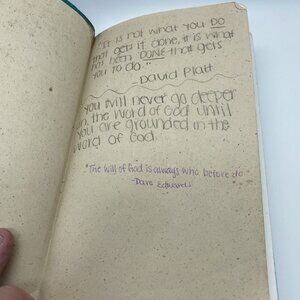 "It is not what you DO
that gets it done, it is what
has been DONE that gets
you to do."
-David Platt
you will never go deeper
in the word of God until
you are grounded in the
word of God.
"The will of God is always who before do"
-Dave Edwards